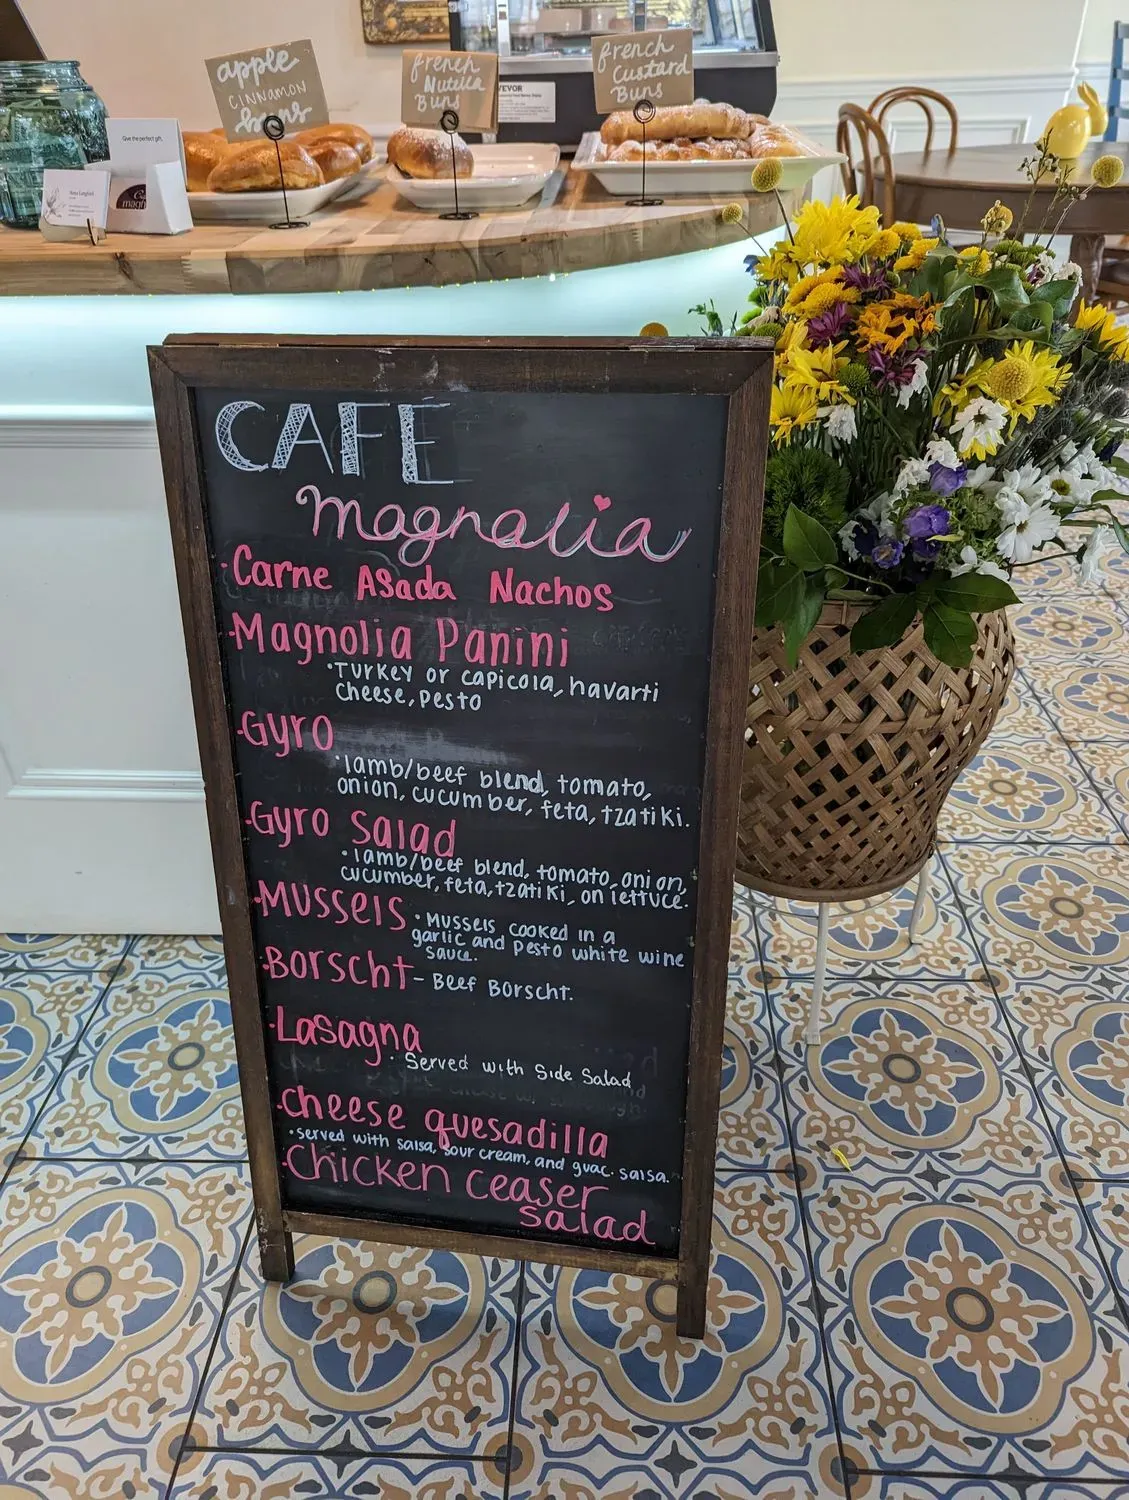 apple
cinnamon
buns
french
Nutella
Buns
french
Custard
Buns
VEVOR
Give the perfect gift.
CAFE
magnolia
·Carne Asada Nachos
·Magnolia Panini
·Turkey or capicola, havarti
cheese, pesto
·Gyro
·lamb/beef blend, tomato,
onion, cucumber, feta, tzatiki.
·Gyro Salad
·lamb/beef blend, tomato, onion,
cucumber, feta, tzatiki, on lettuce.
·Mussels
·Mussels cooked in a
garlic and pesto white wine
sauce.
·Borscht - Beef Borscht.
·Lasagna
·Served with Side Salad
·cheese quesadilla
·served with salsa, sour cream, and guac. salsa.
·Chicken ceaser
salad